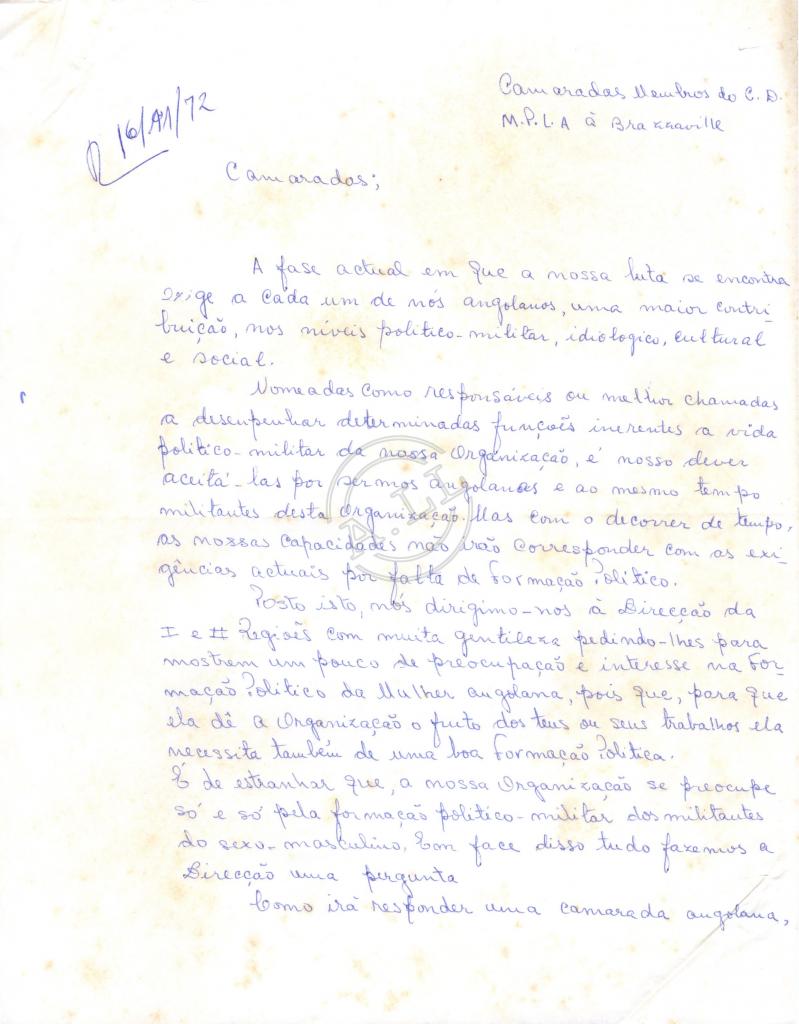 Camaradas Membros do C.D.
M.P.L.A à Brazzaville
16/11/72
Camaradas;
A fase actual em que a nossa luta se encontra
exige a cada um de nós angolanos, uma maior contri-
buição, nos níveis politico-militar, idiologico, cultural
e social.
Nomeadas como responsáveis ou melhor chamadas
a desempenhar determinadas funções inerentes a vida
politico-militar da nossa Organização, é nosso dever
aceitá-las por sermos angolanas e ao mesmo tempo
militantes desta Organização. Mas com o decorrer de tempo,
as nossas capacidades não irão corresponder com as exi-
gências actuais por falta de Formação Politico.
Posto isto, nós dirigimo-nos à Direcção da
I e II Regiões com muita gentileza pedindo-lhes para
mostrem um pouco de preocupação e interesse na For-
mação Politico da Mulher angolana, pois que, para que
ela dê a Organização o fruto dos teus ou seus trabalhos ela
necessita também de uma boa Formação Politica.
É de estranhar que, a nossa Organização se preocupe
só e só pela formação politico-militar dos militantes
do sexo-masculino. Em face disso tudo fazemos a
Direcção uma pergunta
Como irá responder uma camarada angolana,
A.LI